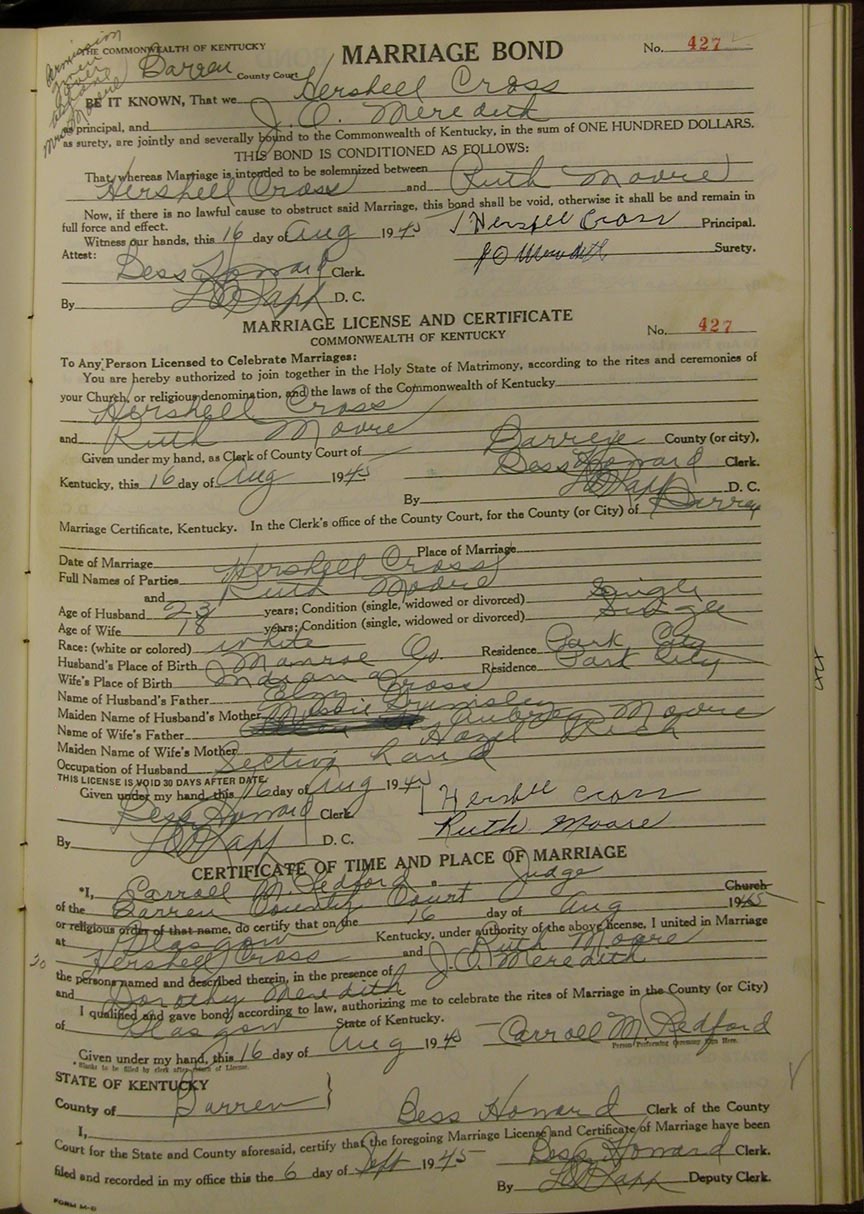 THE COMMONWEALTH OF KENTUCKY
MARRIAGE BOND
No. 427
Permission given over phone Mrs. Moore
Barren County Court
BE IT KNOWN, That we Hershell Cross
as principal, and J. O. Meredith
as surety, are jointly and severally bound to the Commonwealth of Kentucky, in the sum of ONE HUNDRED DOLLARS.
THIS BOND IS CONDITIONED AS FOLLOWS:
That, whereas Marriage is intended to be solemnized between
Hershell Cross and Ruth Moore
Now, if there is no lawful cause to obstruct said Marriage, this bond shall be void, otherwise it shall be and remain in
full force and effect.
Witness our hands, this 16 day of Aug 1945 Hershell Cross Principal.
J O Meredith Surety.
Attest:
Bess Howard Clerk.
By D. C.
MARRIAGE LICENSE AND CERTIFICATE
COMMONWEALTH OF KENTUCKY
No. 427
To Any Person Licensed to Celebrate Marriages:
You are hereby authorized to join together in the Holy State of Matrimony, according to the rites and ceremonies of
your Church, or religious denomination, and the laws of the Commonwealth of Kentucky
Hershell Cross
and Ruth Moore
Given under my hand, as Clerk of County Court of Barren County (or city),
Kentucky, this 16 day of Aug 1945 Bess Howard Clerk.
By D. C.
Marriage Certificate, Kentucky. In the Clerk's office of the County Court, for the County (or City) of Barren
Date of Marriage Place of Marriage
Full Names of Parties Hershell Cross
and Ruth Moore
Age of Husband 23 years; Condition (single, widowed or divorced) Single
Age of Wife 18 years; Condition (single, widowed or divorced) Single
Race: (white or colored) white
Husband's Place of Birth Monroe Co. Residence Park City
Wife's Place of Birth Indiana Residence Park City
Name of Husband's Father Elza Cross
Maiden Name of Husband's Mother
Name of Wife's Father Aubrey Moore
Maiden Name of Wife's Mother Hazel
Occupation of Husband Section hand
THIS LICENSE IS VOID 30 DAYS AFTER DATE.
Given under my hand, this 16 day of Aug 1945
Bess Howard Clerk Hershell Cross
By D. C. Ruth Moore
CERTIFICATE OF TIME AND PLACE OF MARRIAGE
*I, Carroll M. Redford a Judge
of the Barren County Court Church
or religious order of that name, do certify that on the 16 day of Aug 1945
at Glasgow Kentucky, under authority of the above license, I united in Marriage
Hershell Cross and Ruth Moore
the persons named and described therein, in the presence of J. O. Meredith
and Dorothy Meredith
I qualified and gave bond, according to law, authorizing me to celebrate the rites of Marriage in the County (or City)
of Glasgow State of Kentucky.
Given under my hand, this 16 day of Aug 1945 Carroll M. Redford
Person Performing Ceremony Sign Here.
*Blanks to be filled by clerk after return of License.
STATE OF KENTUCKY
County of Barren
I, Bess Howard Clerk of the County
Court for the State and County aforesaid, certify that the foregoing Marriage License and Certificate of Marriage have been
filed and recorded in my office this the 6 day of Sept 1945 Bess Howard Clerk.
By Deputy Clerk.